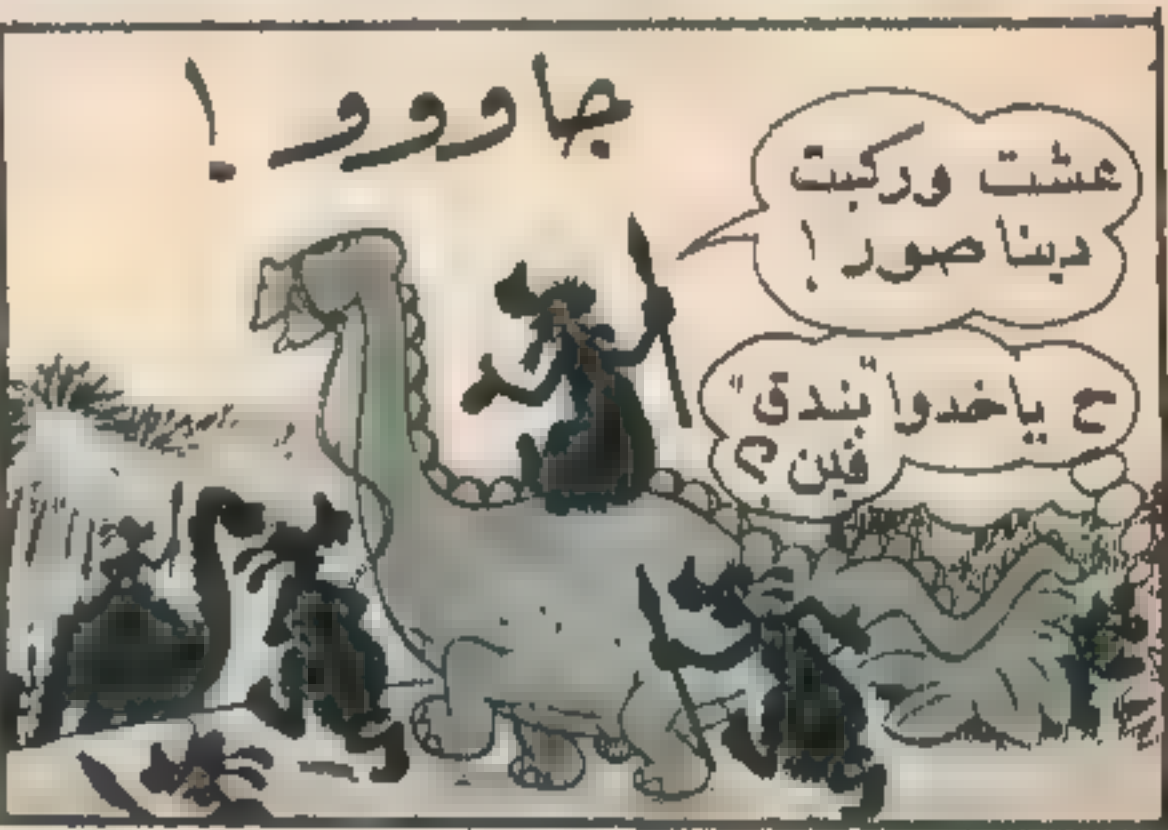 جاووو !
عشت وركبت
ديناصور !
ح ياخدوا "بندق"
فين ؟